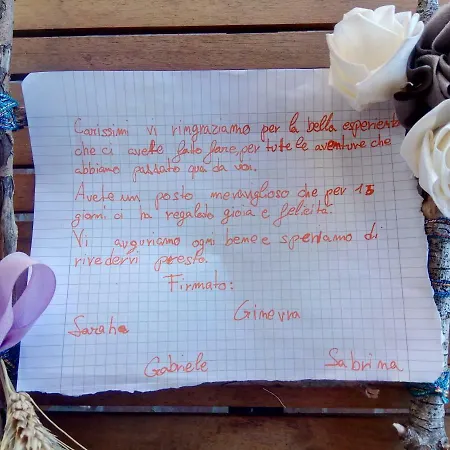 Carissimi vi ringraziamo per la bella esperienza
che ci avete fato fare, per tute le aventure che
abbiamo passato qua da voi.
Avete un posto meraviglioso che per 15
giorni ci ha regalato gioia e felicità.
Vi auguriamo ogni bene e speriamo di
rivedervi presto.
Firmato:
Ginevra
Sarah
Gabriele
Sabrina